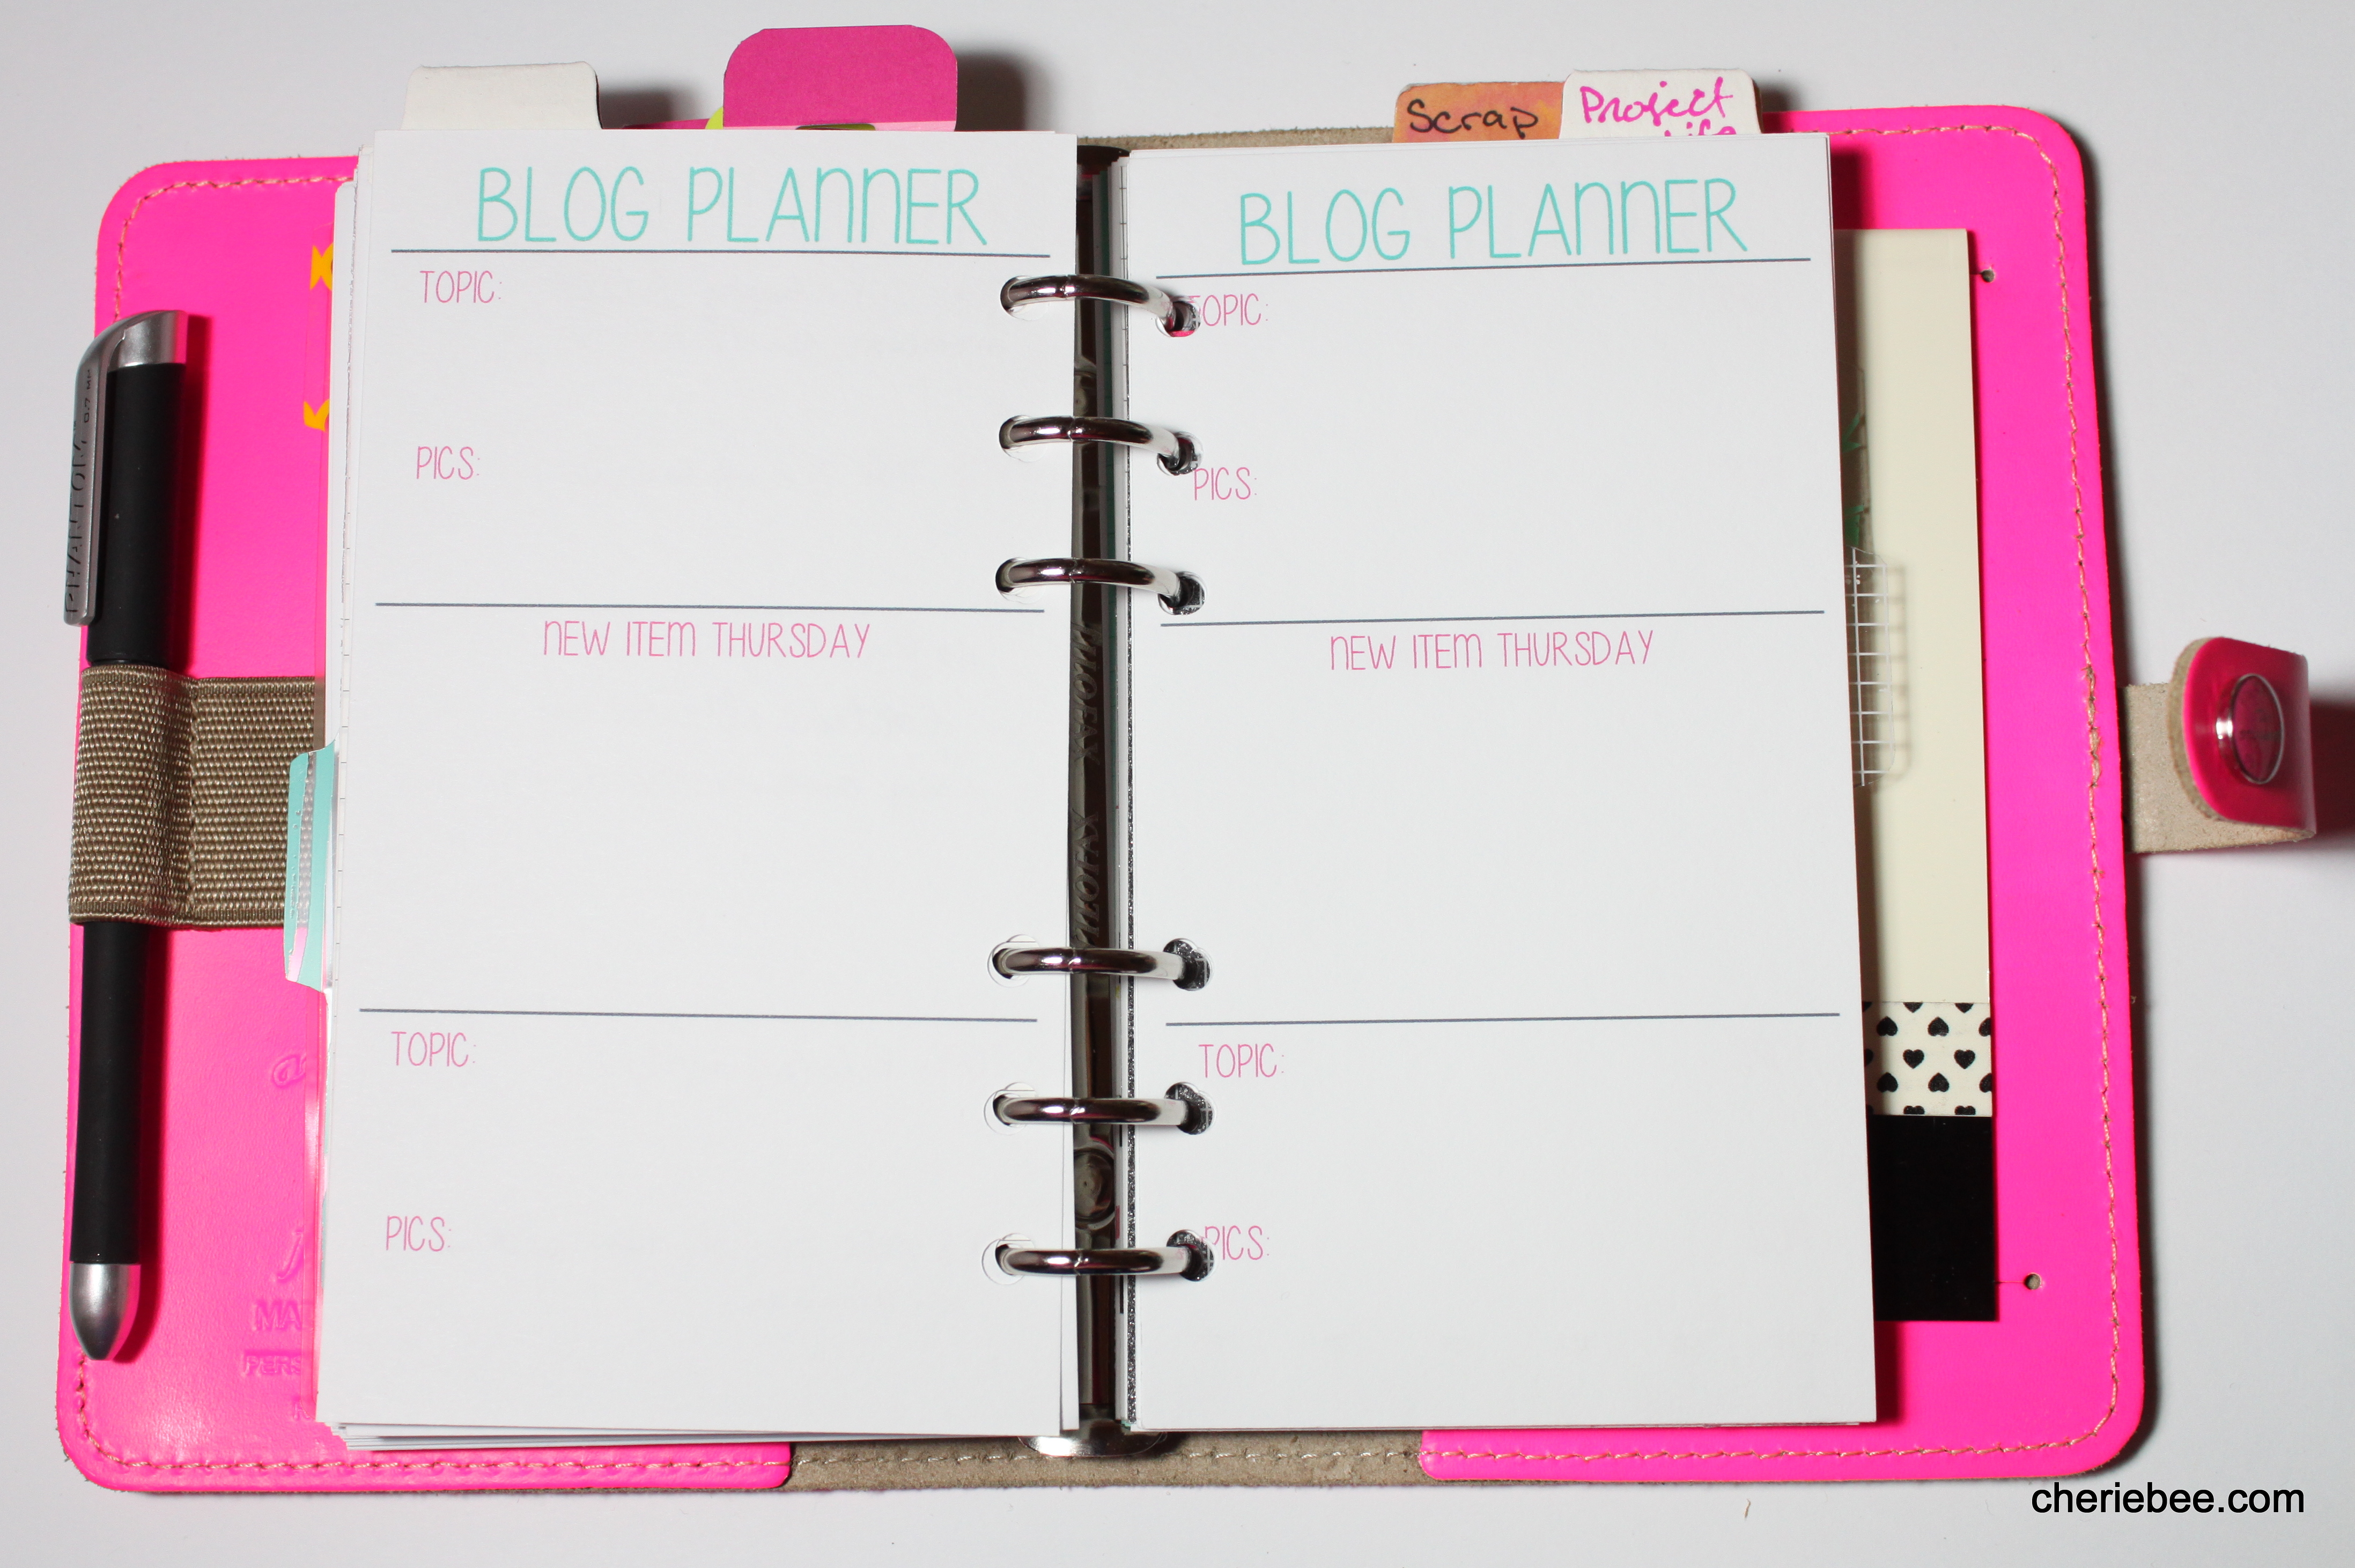 Scrap
Project
Life
BLOG PLANNER
TOPIC:
PICS:
NEW ITEM THURSDAY
TOPIC:
PICS:
BLOG PLANNER
TOPIC:
PICS:
NEW ITEM THURSDAY
TOPIC:
PICS:
cheriebee.com